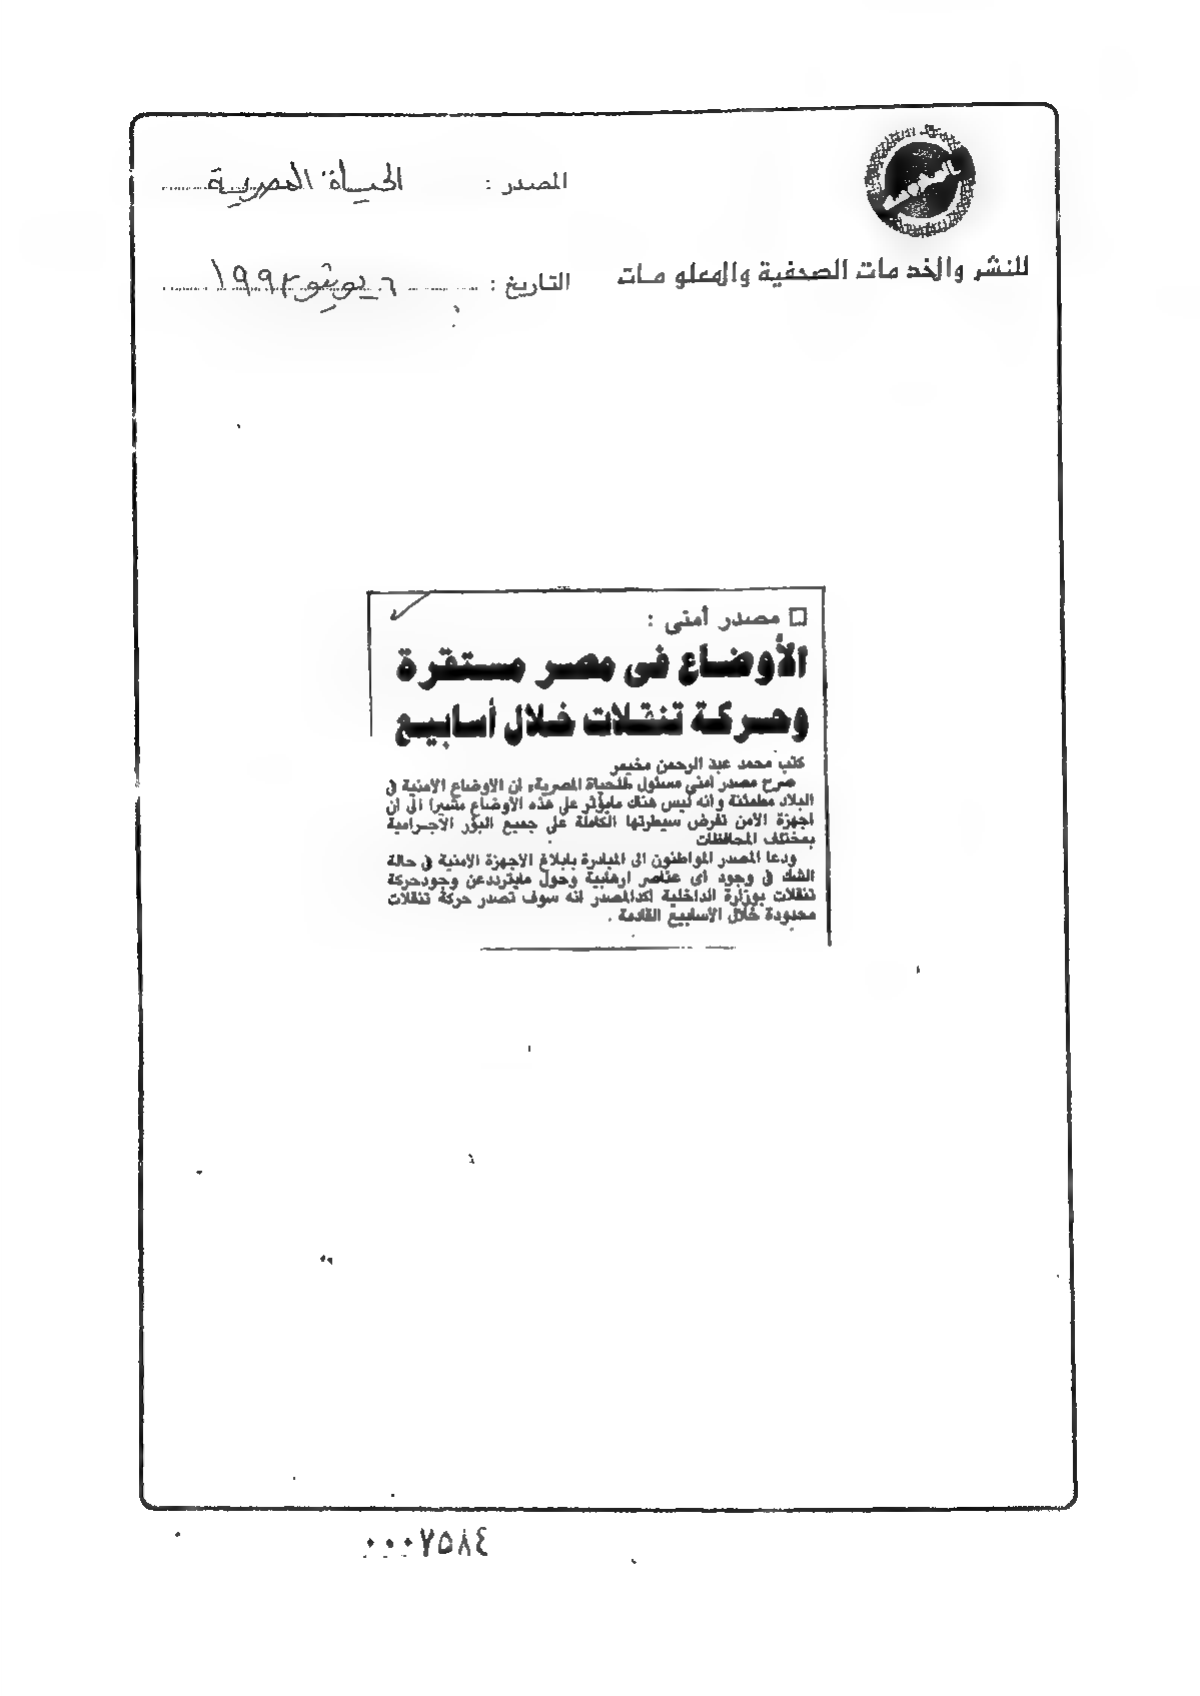 المصدر : الحياة المصرية
للنشر والخدمات الصحفية والمعلومات
التاريخ : ٦ يونيو ١٩٩٣
□ مصدر أمنى :
الأوضاع فى مصر مستقرة
وحركة تنقلات خلال أسابيع
كتب محمد عبد الرحمن مخيمر
صرح مصدر امنى مسئول «للحياة المصرية» ان الاوضاع الامنية فى
البلاد مطمئنة وانه ليس هناك مايؤثر على هذه الاوضاع مشيرا الى ان
اجهزة الامن تفرض سيطرتها الكاملة على جميع البؤر الاجرامية
بمختلف المحافظات
ودعا المصدر المواطنون الى المبادرة بابلاغ الاجهزة الامنية فى حالة
الشك فى وجود اى عناصر ارهابية وحول مايترددعن وجودحركة
تنقلات بوزارة الداخلية اكدالمصدر انه سوف تصدر حركة تنقلات
محدودة خلال الأسابيع القادمة .
٠٠٠٧٥٨٤